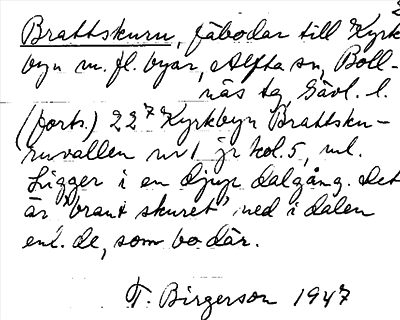 Brattskuru, fäbodar till Kyrk
byn m. fl. byar, Alfta sn, Boll-
näs tg Gävl. l.
(forts.) 22⁷ Kyrkbyn Brattsku-
ruvallen nr 1 jr kol. 5, ul.
Ligger i en djup dalgång. Det
är 'brant skuret' ned i dalen
enl. de, som bo där.
T. Birgerson 1947